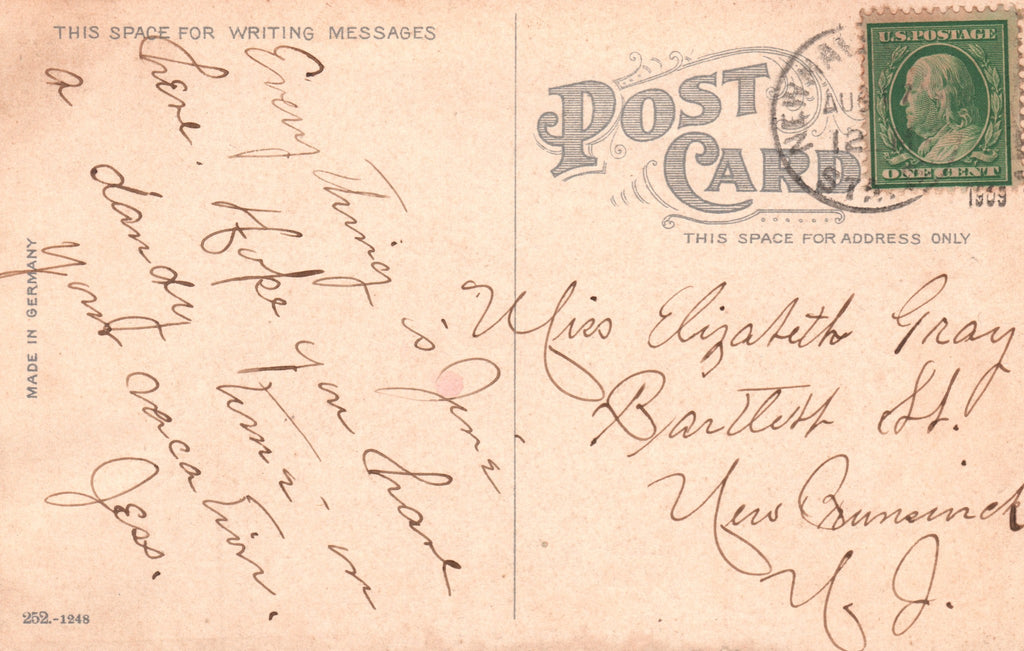 THIS SPACE FOR WRITING MESSAGES
Every thing is fine
here. Hope you have
a dandy time on
your vacation.
Jess.
MADE IN GERMANY
252.-1248
POST CARD
THIS SPACE FOR ADDRESS ONLY
NEWARK
AUG
12
STA
1909
U.S. POSTAGE
ONE CENT
Miss Elizabeth Gray
Bartlett St.
New Brunswick
N. J.